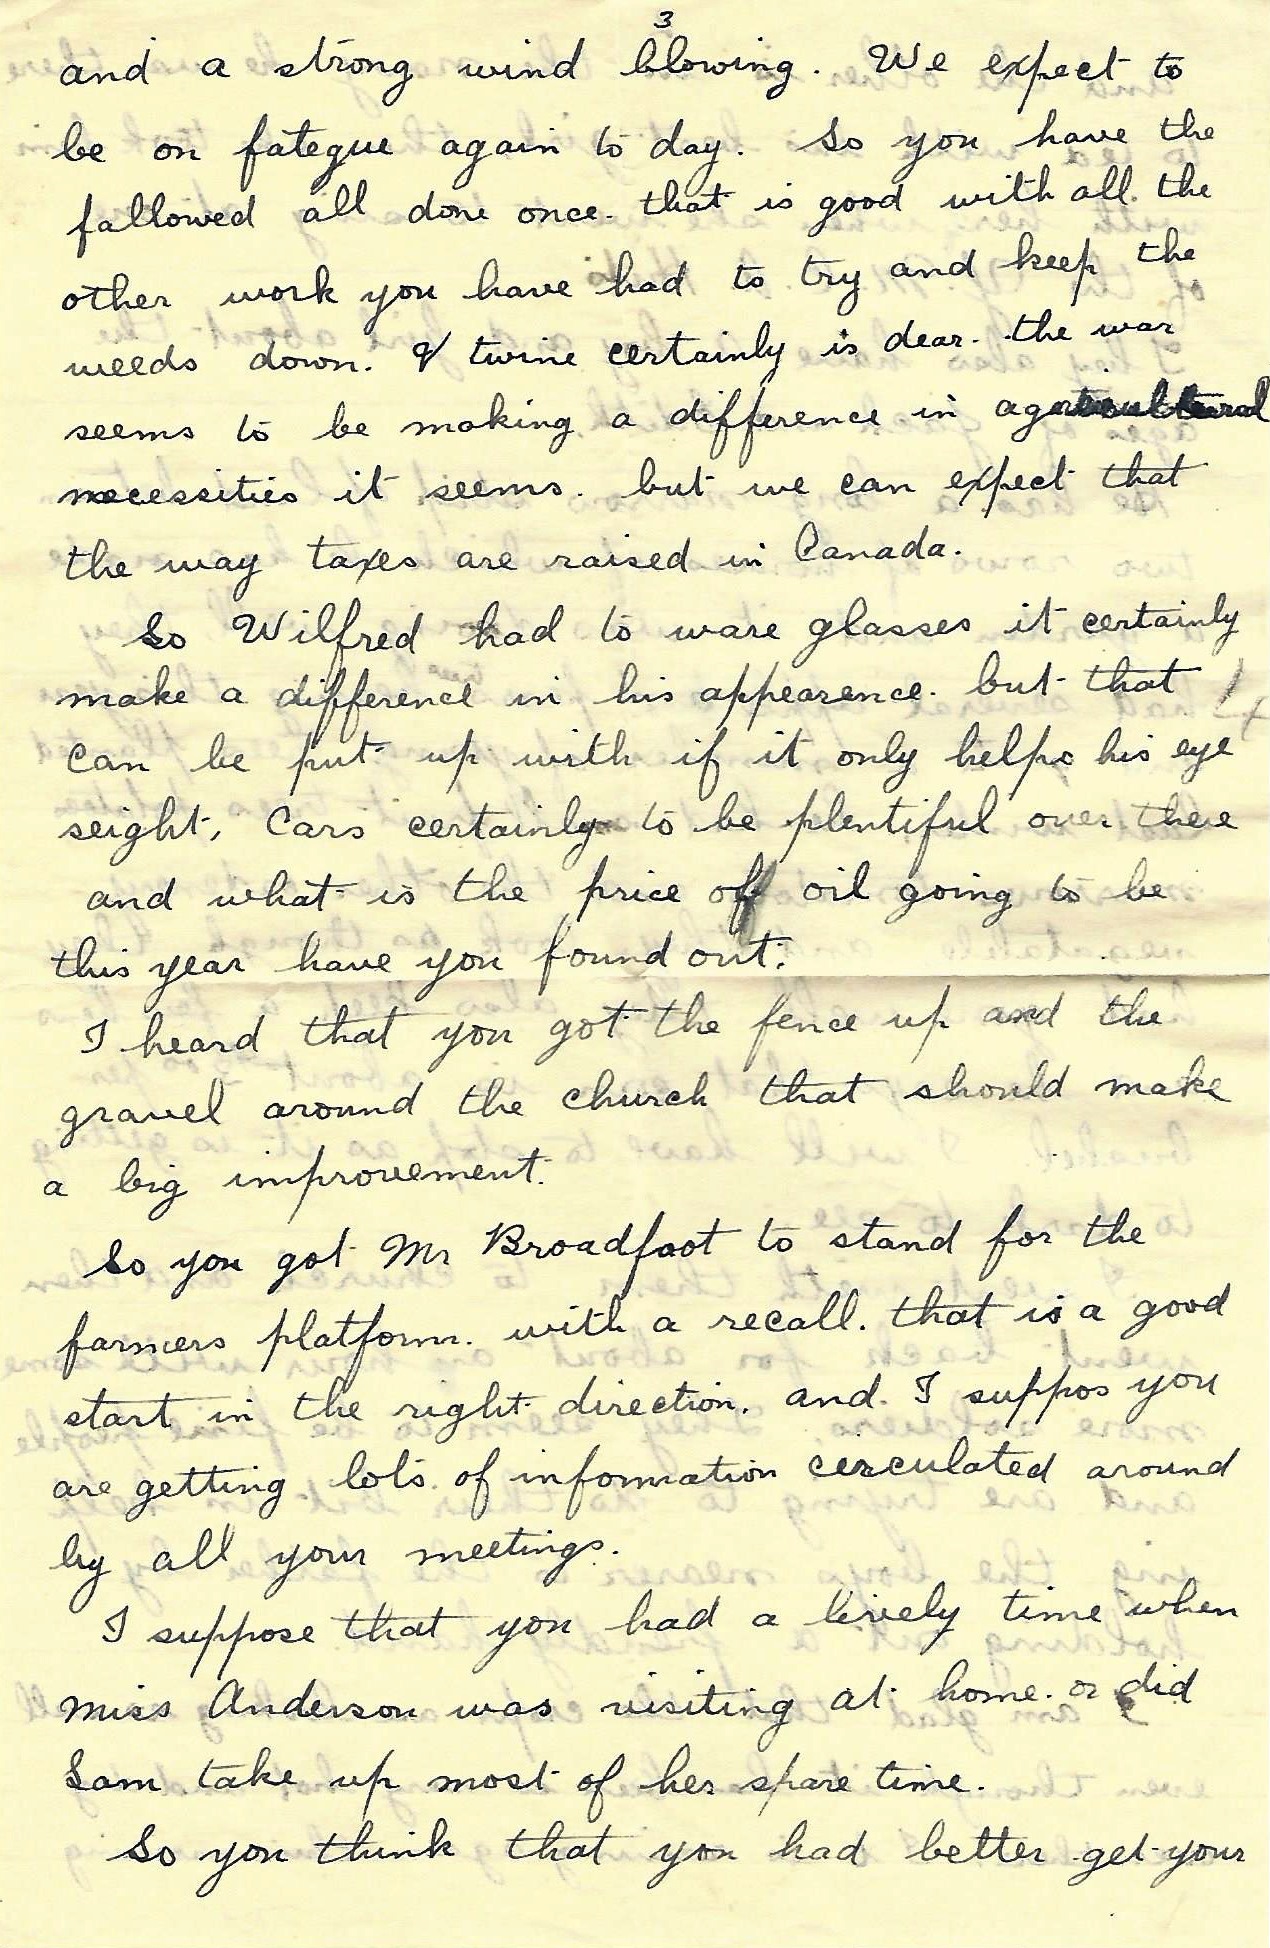 3
and a strong wind blowing. We expect to
be on fategue again to day. So you have the
fallowed all done once. that is good with all the
other work you have had to try and keep the
weeds down. & twine certainly is dear. the war
seems to be making a difference in agricultural
necessities it seems. but we can expect that
the way taxes are raised in Canada.
So Wilfred had to ware glasses it certainly
make a difference in his appearence. but that
can be put up with if it only helps his eye
seight. Cars certainly to be plentiful over there
and what is the price off oil going to be
this year have you found out.
I heard that you got the fence up and the
gravel around the church that should make
a big improvement.
So you got Mr Broadfoot to stand for the
farmers platform. with a recall. that is a good
start in the right direction. and I suppos you
are getting lots of information cerculated around
by all your meetings.
I suppose that you had a lively time when
Miss Anderson was visiting at home. or did
Sam take up most of her spare time.
So you think that you had better get your